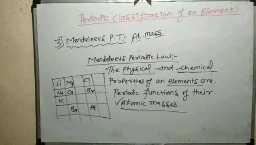 Periodic Classification of an Element:
Mendeleev's P.T: At. mass
Mendeleev's Periodic Law:-
"The Physical and chemical
Properties of an Elements are
Periodic functions of their
Atomic masses